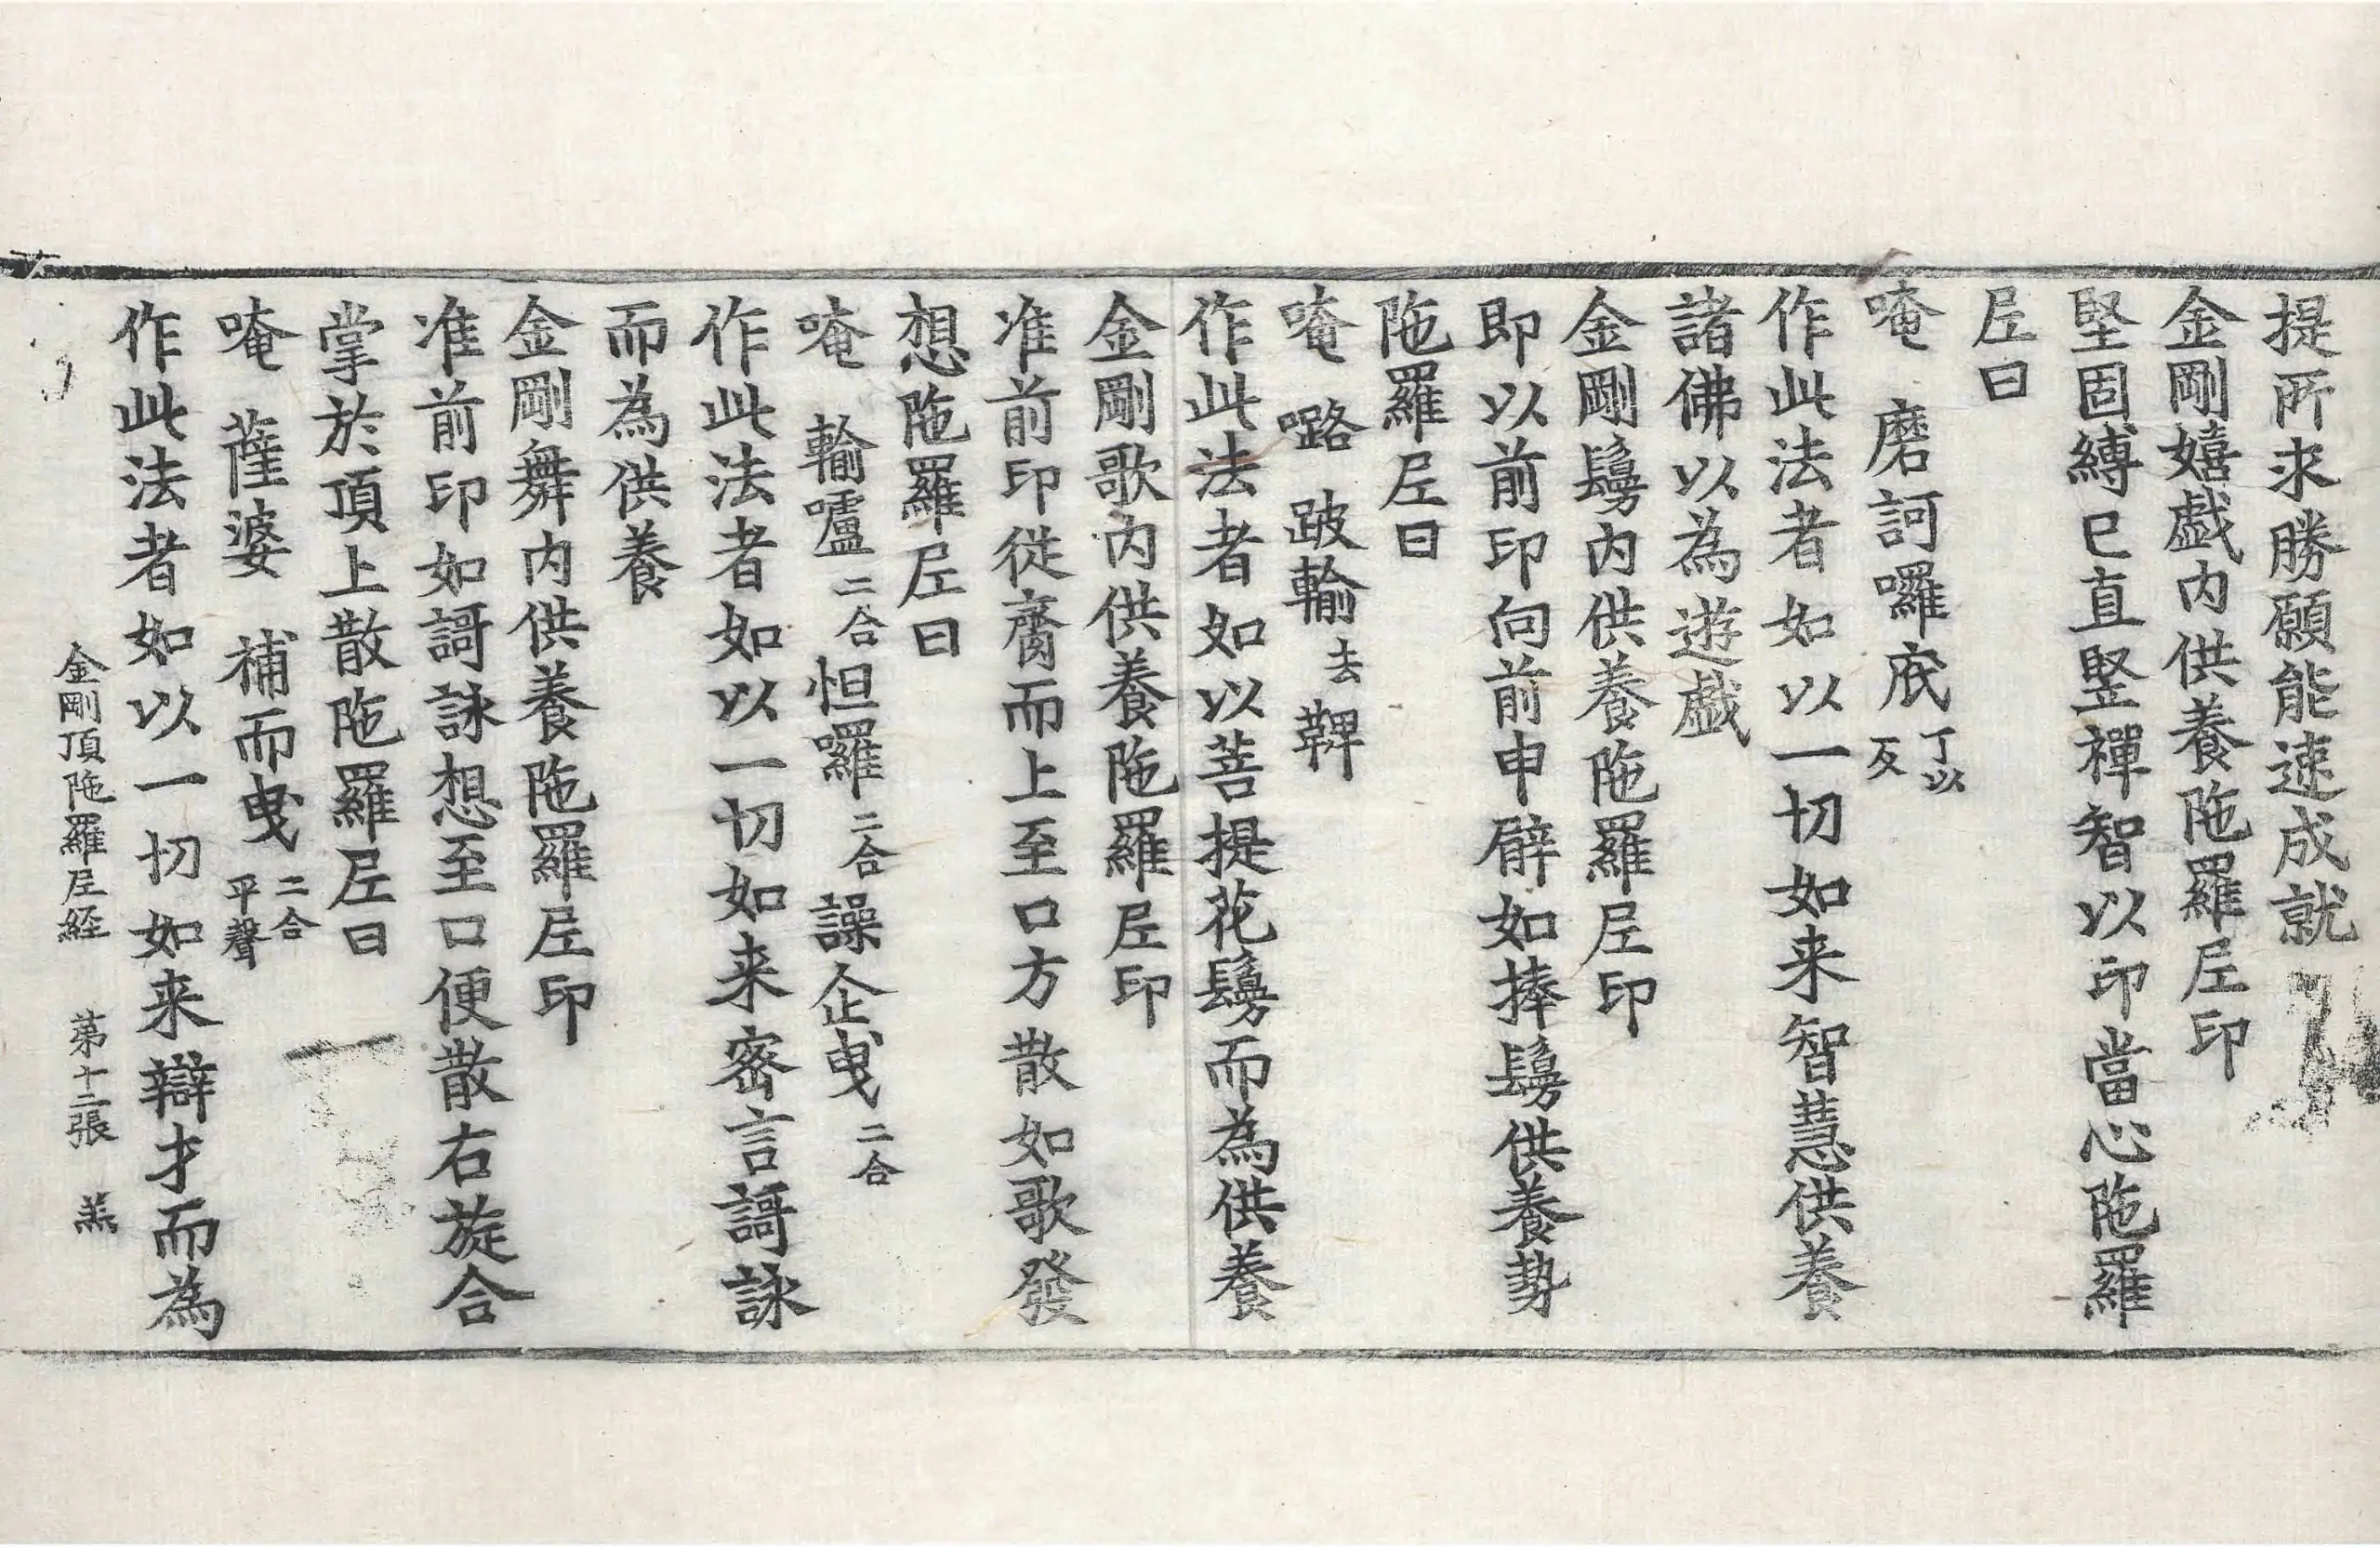 提所求勝願能速成就
金剛嬉戲内供養陁羅𡰱印
堅固縛已直竪禪智以印當心陁羅
𡰱曰
唵 磨訶囉底丁以反
作此法者如以一切如来智慧供養
諸佛以為遊戲
金剛鬘内供養陁羅𡰱印
即以前印向前申臂如捧鬘供養勢
陁羅𡰱曰
唵 𡀔 跛輸去鞞
作此法者如以菩提花鬘而為供養
金剛歌内供養陁羅𡰱印
准前印從齎而上至口方散如歌發
想陁羅𡰱曰
唵 輸嚧二合怛囉二合譟企曳二合
作此法者如以一切如来密言謌詠
而為供養
金剛舞内供養陁羅𡰱印
准前印如謌詠想至口便散右旋合
掌於頂上散陁羅𡰱曰
唵 薩婆 補而曳二合平聲
作此法者如以一切如来辯才而為
金剛頂陁羅𡰱経 第十二張 羔